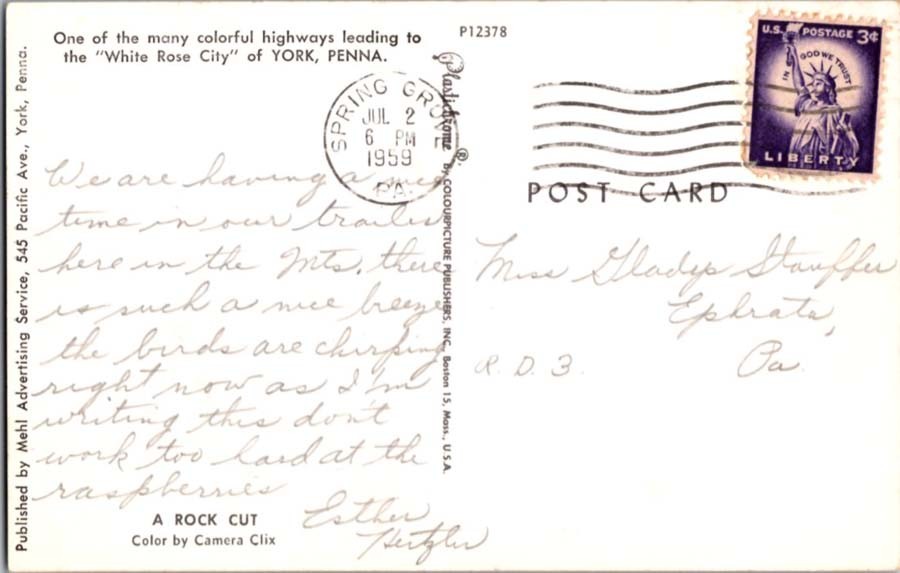 One of the many colorful highways leading to
the "White Rose City" of YORK, PENNA.
P12378
U.S. POSTAGE 3¢
IN GOD WE TRUST
LIBERTY
SPRING GROVE
JUL 2
6 PM
1959
PA.
POST CARD
We are having a nice
time in our trailer
here in the Mts. there
is such a nice breeze
the birds are chirping
right now as I'm
writing this don't
work too hard at the
raspberries
Esther
Hertzler
Miss Gladys Stauffer
Ephrata,
R. D. 3.
Pa.
A ROCK CUT
Color by Camera Clix
Published by Mehl Advertising Service, 545 Pacific Ave., York, Penna.
Plastichrome ® by COLOURPICTURE PUBLISHERS, INC., Boston 15, Mass., U.S.A.